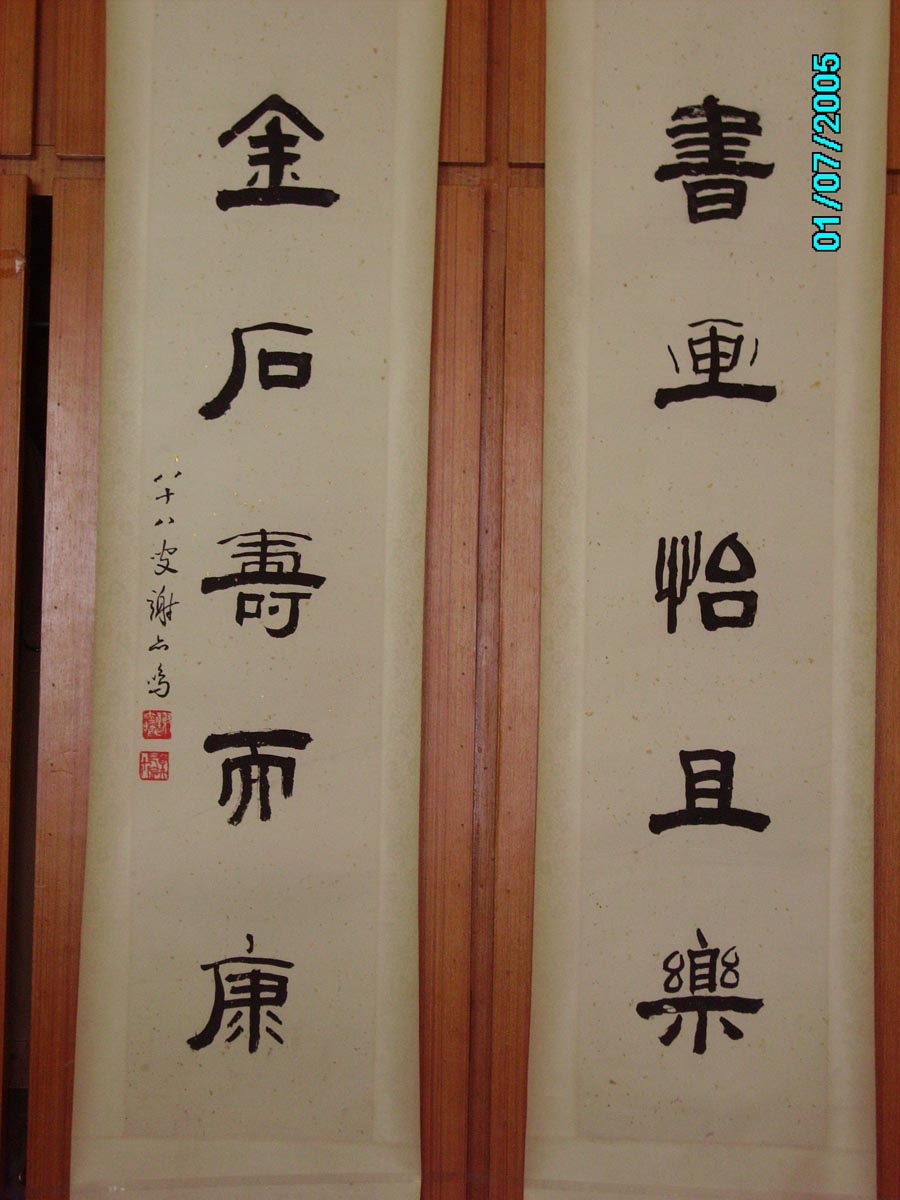 書画怡且樂
金石壽而康
八十八叟謝六鳴
01/07/2005